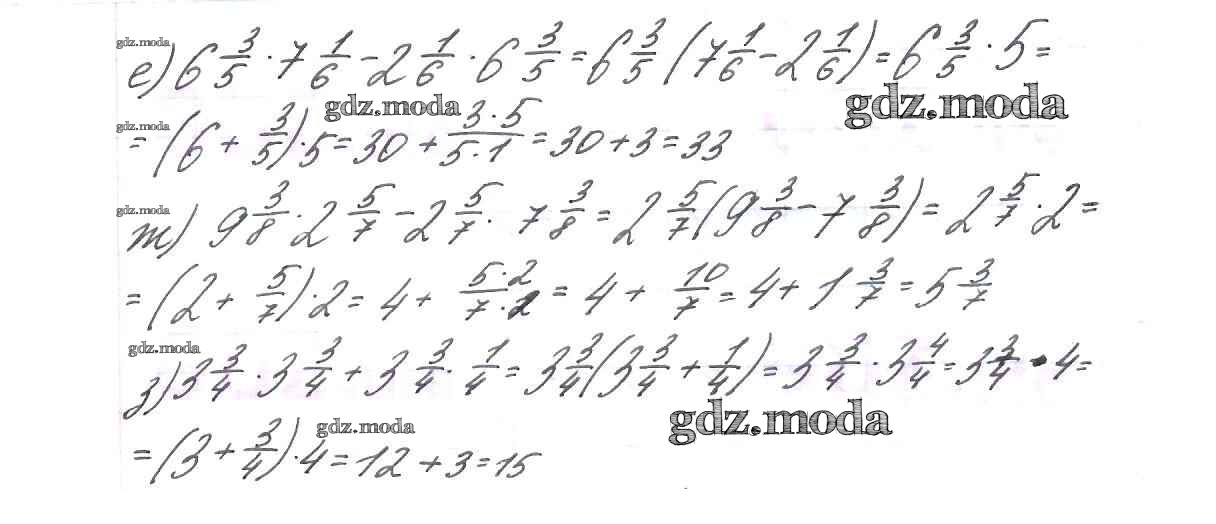 gdz.moda
е) 6 3/5 · 7 1/6 − 2 1/6 · 6 3/5 = 6 3/5 (7 1/6 − 2 1/6) = 6 3/5 · 5 =
gdz.moda gdz.moda
gdz.moda
= (6 + 3/5) · 5 = 30 + 3·5/5·1 = 30 + 3 = 33
gdz.moda
ж) 9 3/8 · 2 5/7 − 2 5/7 · 7 3/8 = 2 5/7 (9 3/8 − 7 3/8) = 2 5/7 · 2 =
= (2 + 5/7) · 2 = 4 + 5·2/7·1 = 4 + 10/7 = 4 + 1 3/7 = 5 3/7
gdz.moda
з) 3 3/4 · 3 3/4 + 3 3/4 · 1/4 = 3 3/4 (3 3/4 + 1/4) = 3 3/4 · 3 4/4 = 3 3/4 · 4 =
gdz.moda gdz.moda
= (3 + 3/4) · 4 = 12 + 3 = 15